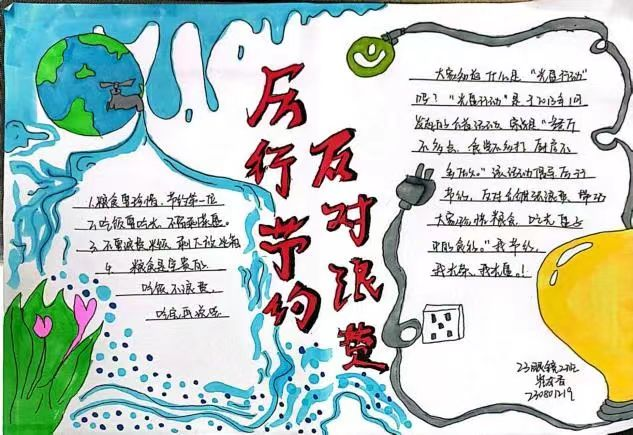 厉行节约
反对浪费
1.粮食要珍惜，节约第一位
2.吃饭要吃光，不留剩
3.不要浪费米饭，剩下放冰箱
4.粮食是宝
吃饭不浪费，
吃完再
大家知道什么是“光盘行动”
吗？“光盘行动”是于2013年1月
发起的公益活动，宗旨“餐厅
不多点、食堂不多打、厨房不
多做。”该活动倡导厉行
节约，反对铺张浪费，带动
大家珍惜粮食，吃光盘子
中的食物。”我节约，
我光荣、我光盘！
23眼镜2班
230801219